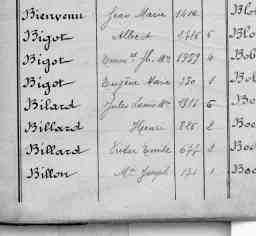 Bienvenu Jean Marie 1412 Blo
Bigot Albert 1716 5 Blo
Bigot 1959 4 Bob
Bigot Eugène Marie 230 1 Bo
Bilard Jules Louis 1316 5 Bo
Billard Henri 826 2 Boc
Billard Emile 677 2 Bo
Billon Joseph 131 1 Boc